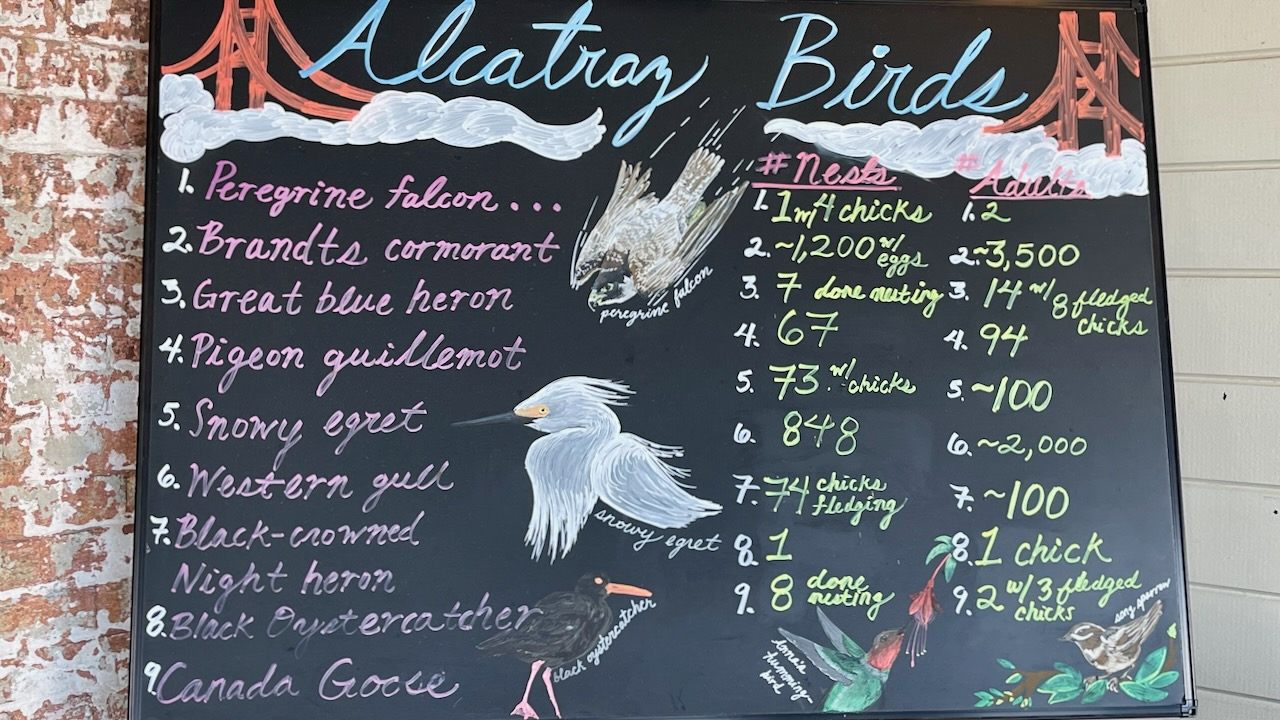 Alcatraz Birds
1. Peregrine falcon...
2. Brandts cormorant
3. Great blue heron
4. Pigeon guillemot
5. Snowy egret
6. Western gull
7. Black-crowned
Night heron
8. Black Oystercatcher
9. Canada Goose
peregrine falcon
snowy egret
black oystercatcher
# Nests
1. 1 w/ 4 chicks
2. ~1,200 w/ eggs
3. 7 done nesting
4. 67
5. 73 w/ chicks
6. 848
7. 74 chicks fledging
8. 1
9. 8 done nesting
# Adults
1. 2
2. ~3,500
3. 14 w/ 8 fledged chicks
4. 94
5. ~100
6. ~2,000
7. ~100
8. 1 chick
9. 2 w/ 3 fledged chicks
humming-
bird
song sparrow